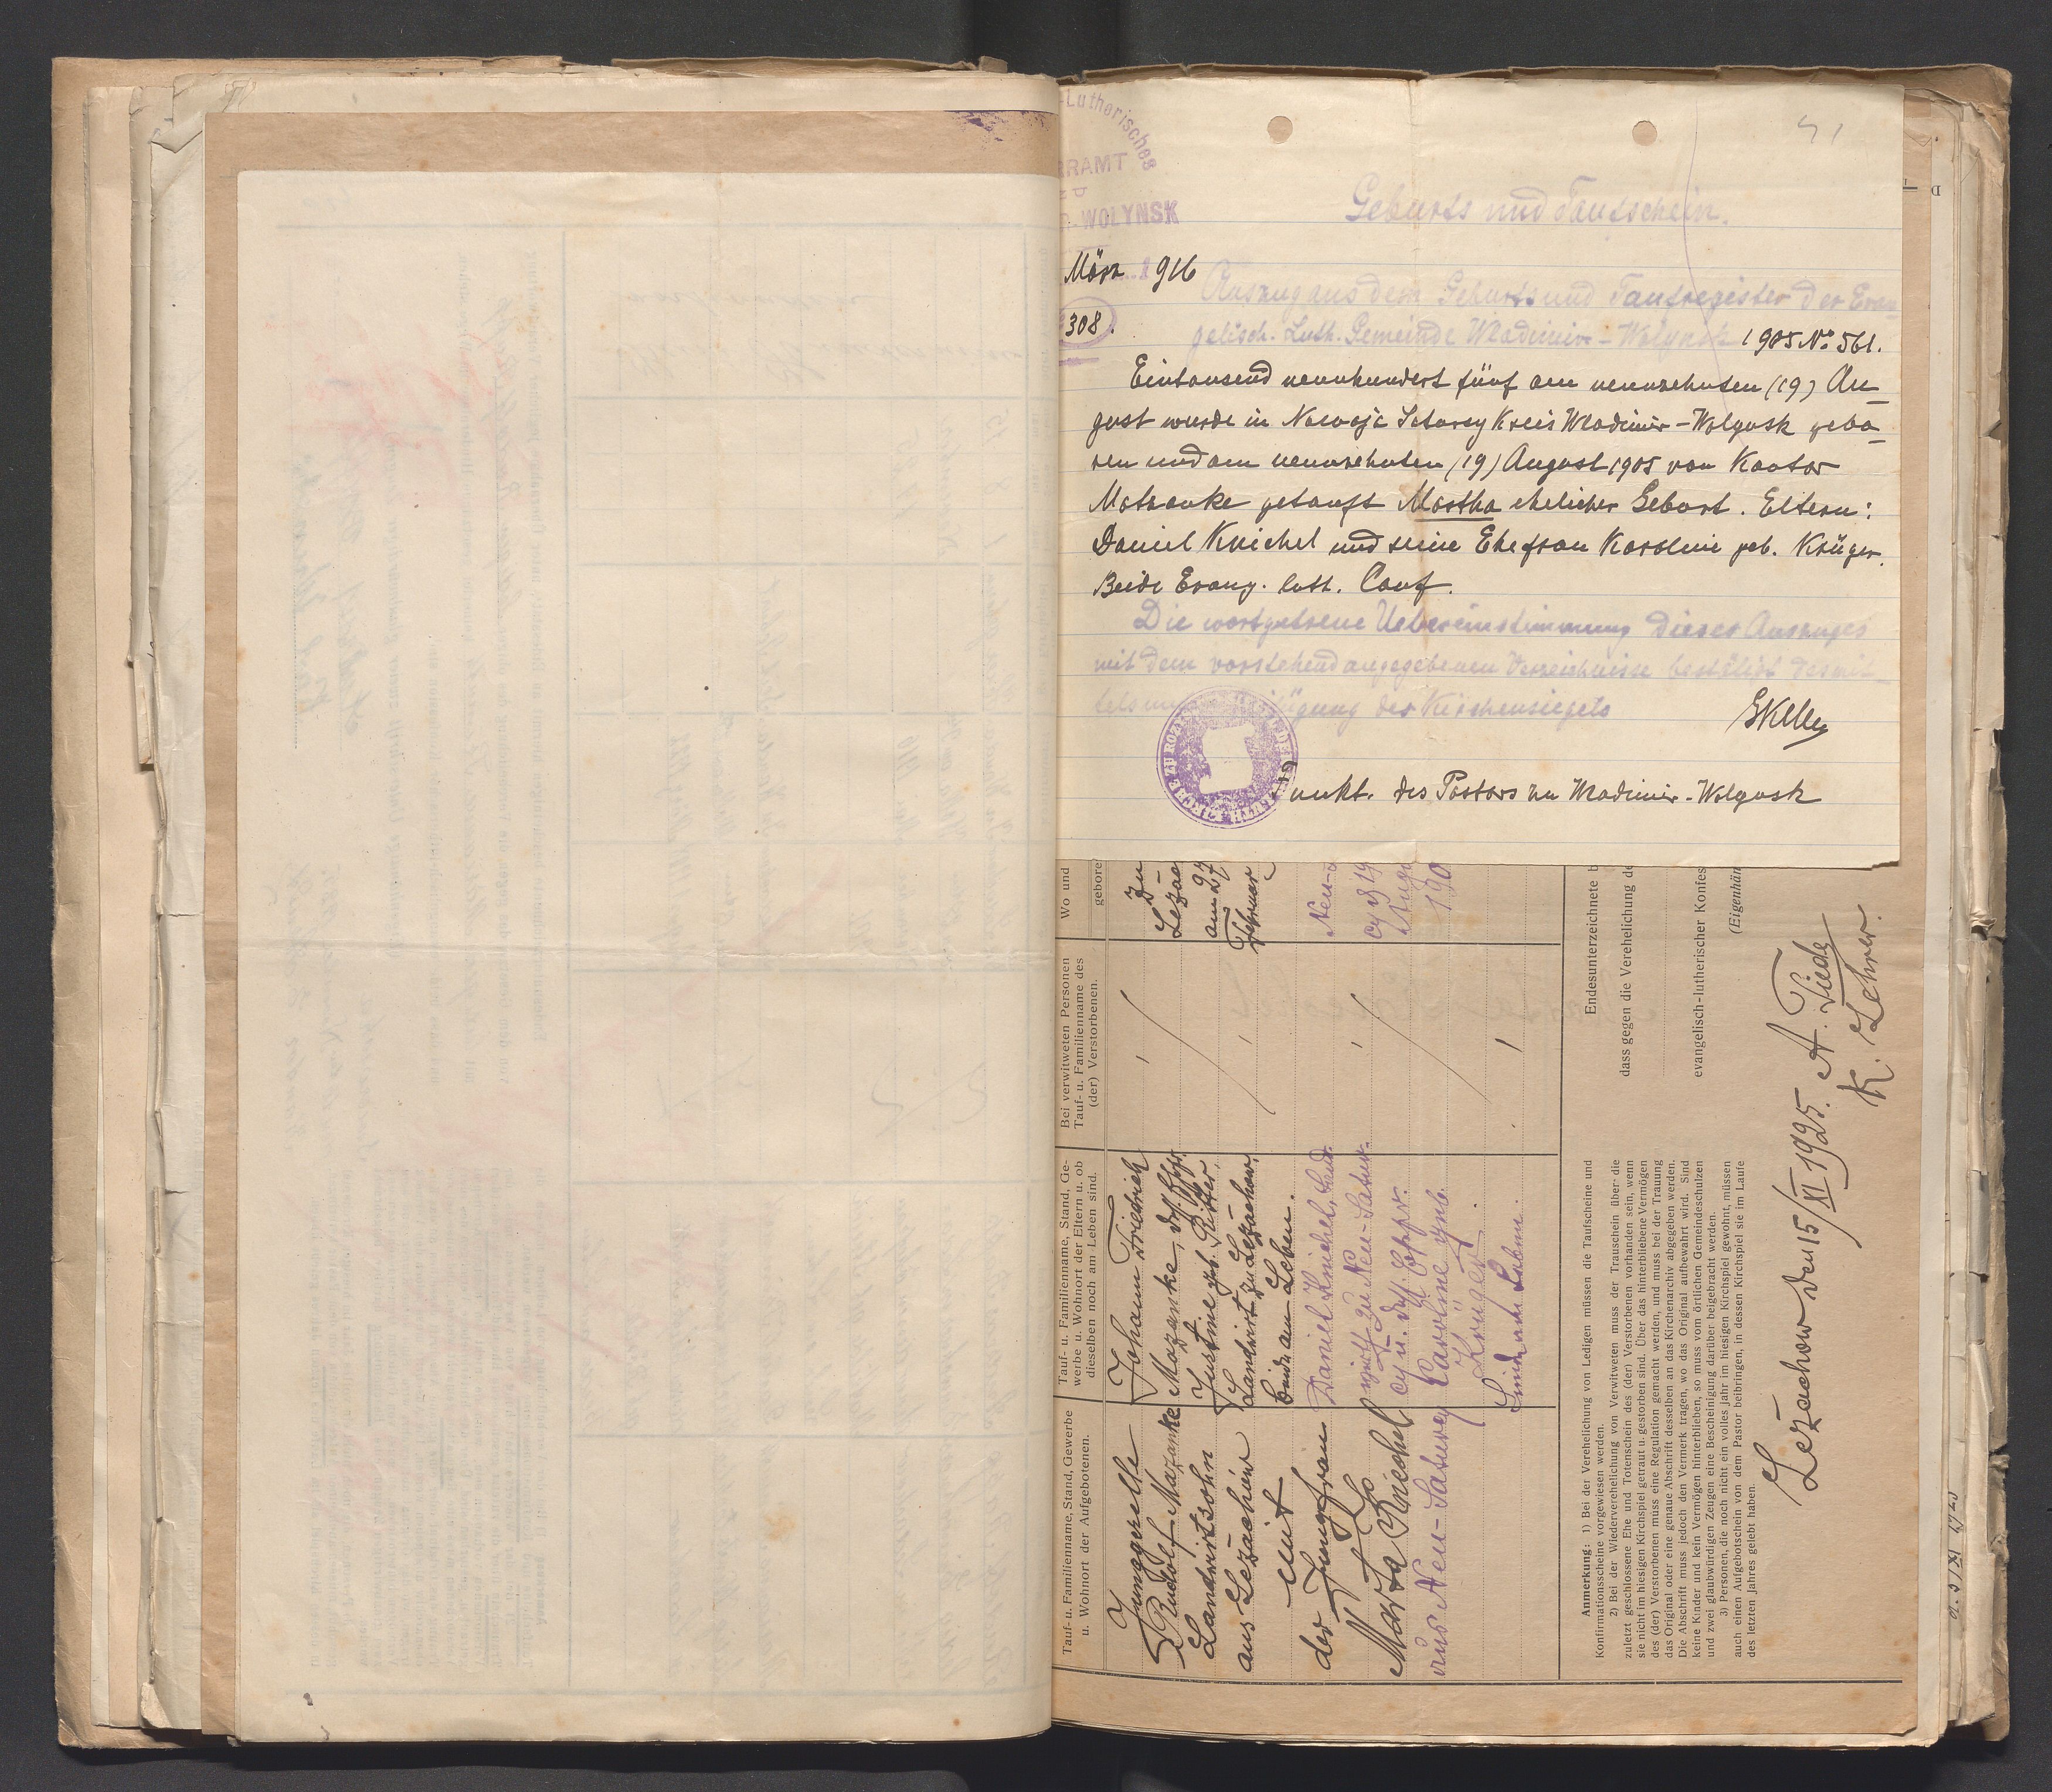 -Lutherisches
RRAMT
WOLYNSK
März 1916
308.
41
Geburts und Taufschein.
Auszug aus dem Geburts und Taufregister der Evan-
gelisch. Luth. Gemeinde Wladimir-Wolynsk 1905 No 561.
Eintausend neunhundert fünf am neunzehnten (19) Au-
gust wurde in Nowaja Saturcy Kreis Wladimir-Wolynsk gebo-
ren und am neunzehnten (19) August 1905 von Kantor
Matzanke getauft Martha ehelicher Geburt. Eltern:
Daniel Knichel und seine Ehefrau Karoline geb. Krüger.
Beide Evang. luth. Conf.
Die wortgetreue Uebereinstimmung dieses Auszuges
mit dem vorstehend angegebenen Verzeichnisse bestätigt desmit-
tels des Kirchensiegels
des Pastors zu Wladimir-Wolynsk
Tauf- u. Familienname, Stand, Gewerbe
u. Wohnort der Aufgebotenen.
Junggeselle
Rudolf Mazanke
Landwirtsohn
aus Lezachów
mit
der Jungfrau
Marta Knichel
aus Neu-Saturcy
Tauf- u. Familienname, Stand, Ge-
werbe u. Wohnort der Eltern u. ob
dieselben noch am Leben sind.
Johann Friedrich
Mazanke, dss. Ehfr.
Justine geb. Ritter,
Landwirt zu Lezachów,
beide am Leben.
Daniel Knichel, Land-
wirt zu Neu-Satur-
cy u. dss. Ehfr.
Caroline geb.
Krüger.
Sind am Leben.
Bei verwitweten Personen
Tauf- u. Familienname des
(der) Verstorbenen.
Wo und
gebore
zu
Lezac-
am 27
Februar
Neu-S
cy d 19
Augu
190
Endesunterzeichnete b
dass gegen die Verehelichung de
evangelisch-lutherischer Konfes
(Eigenhän
Anmerkung: 1) Bei der Verehelichung von Ledigen müssen die Taufscheine und
Konfirmationsscheine vorgewiesen werden.
2) Bei der Wiederverehelichung von Verwitweten muss der Trauschein über die
zuletzt geschlossene Ehe und Totenschein des (der) Verstorbenen vorhanden sein, wenn
sie nicht im hiesigen Kirchspiel getraut u. gestorben sind. Über das hinterbliebene Vermögen
des (der) Verstorbenen muss eine Regulation gemacht werden, und muss bei der Trauung
das Original oder eine genaue Abschrift desselben an das Kirchenarchiv abgegeben werden.
Die Abschrift muss jedoch den Vermerk tragen, wo das Original aufbewahrt wird. Sind
keine Kinder und kein Vermögen hinterblieben, so muss vom örtlichen Gemeindeschulzen
und zwei glaubwürdigen Zeugen eine Bescheinigung darüber beigebracht werden.
3) Personen, die noch nicht ein volles Jahr im hiesigen Kirchspiel gewohnt, müssen
auch einen Aufgebotschein von dem Pastor beibringen, in dessen Kirchspiel sie im Laufe
des letzten Jahres gelebt haben.
Lezachow den 15/XI 1925. A. Tiede
K. Lehrer.